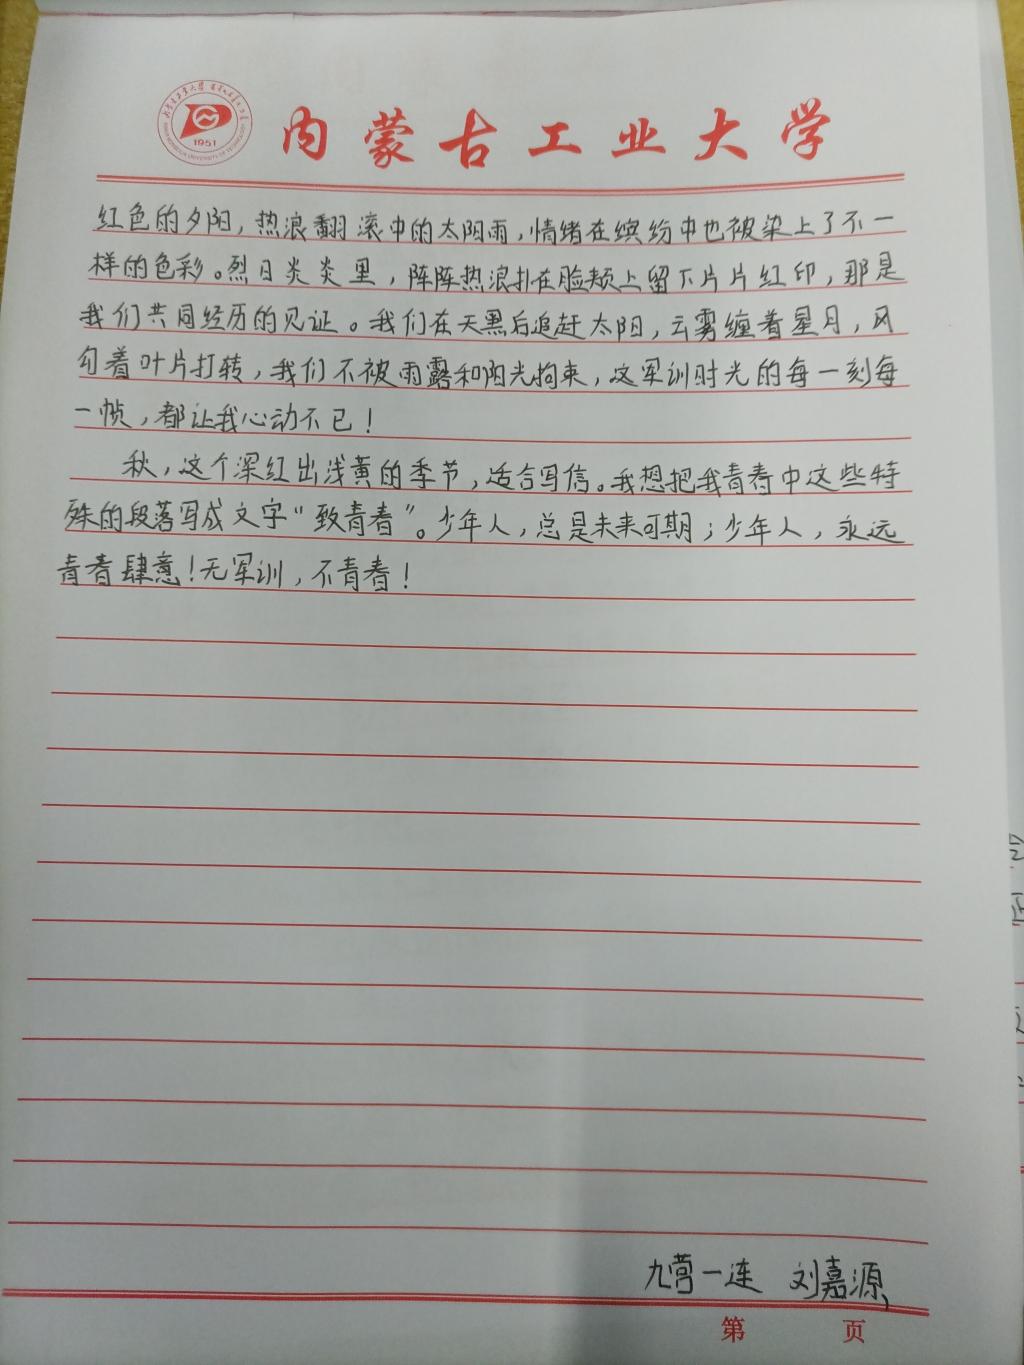 1951
内蒙古工业大学
红色的夕阳，热浪翻滚中的太阳雨，情绪在缤纷中也被染上了不一
样的色彩。烈日炎炎里，阵阵热浪扑在脸颊上留下片片红印，那是
我们共同经历的见证。我们在天黑后追赶太阳，云雾缠着星月，风
勾着叶片打转，我们不被雨露和阳光拘束，这军训时光的每一刻每
一帧，都让我心动不已！
秋，这个深红出浅黄的季节，适合写信。我想把我青春中这些特
殊的段落写成文字“致青春”。少年人，总是未来可期；少年人，永远
青春肆意！无军训，不青春！
九营一连 刘嘉源
第 页